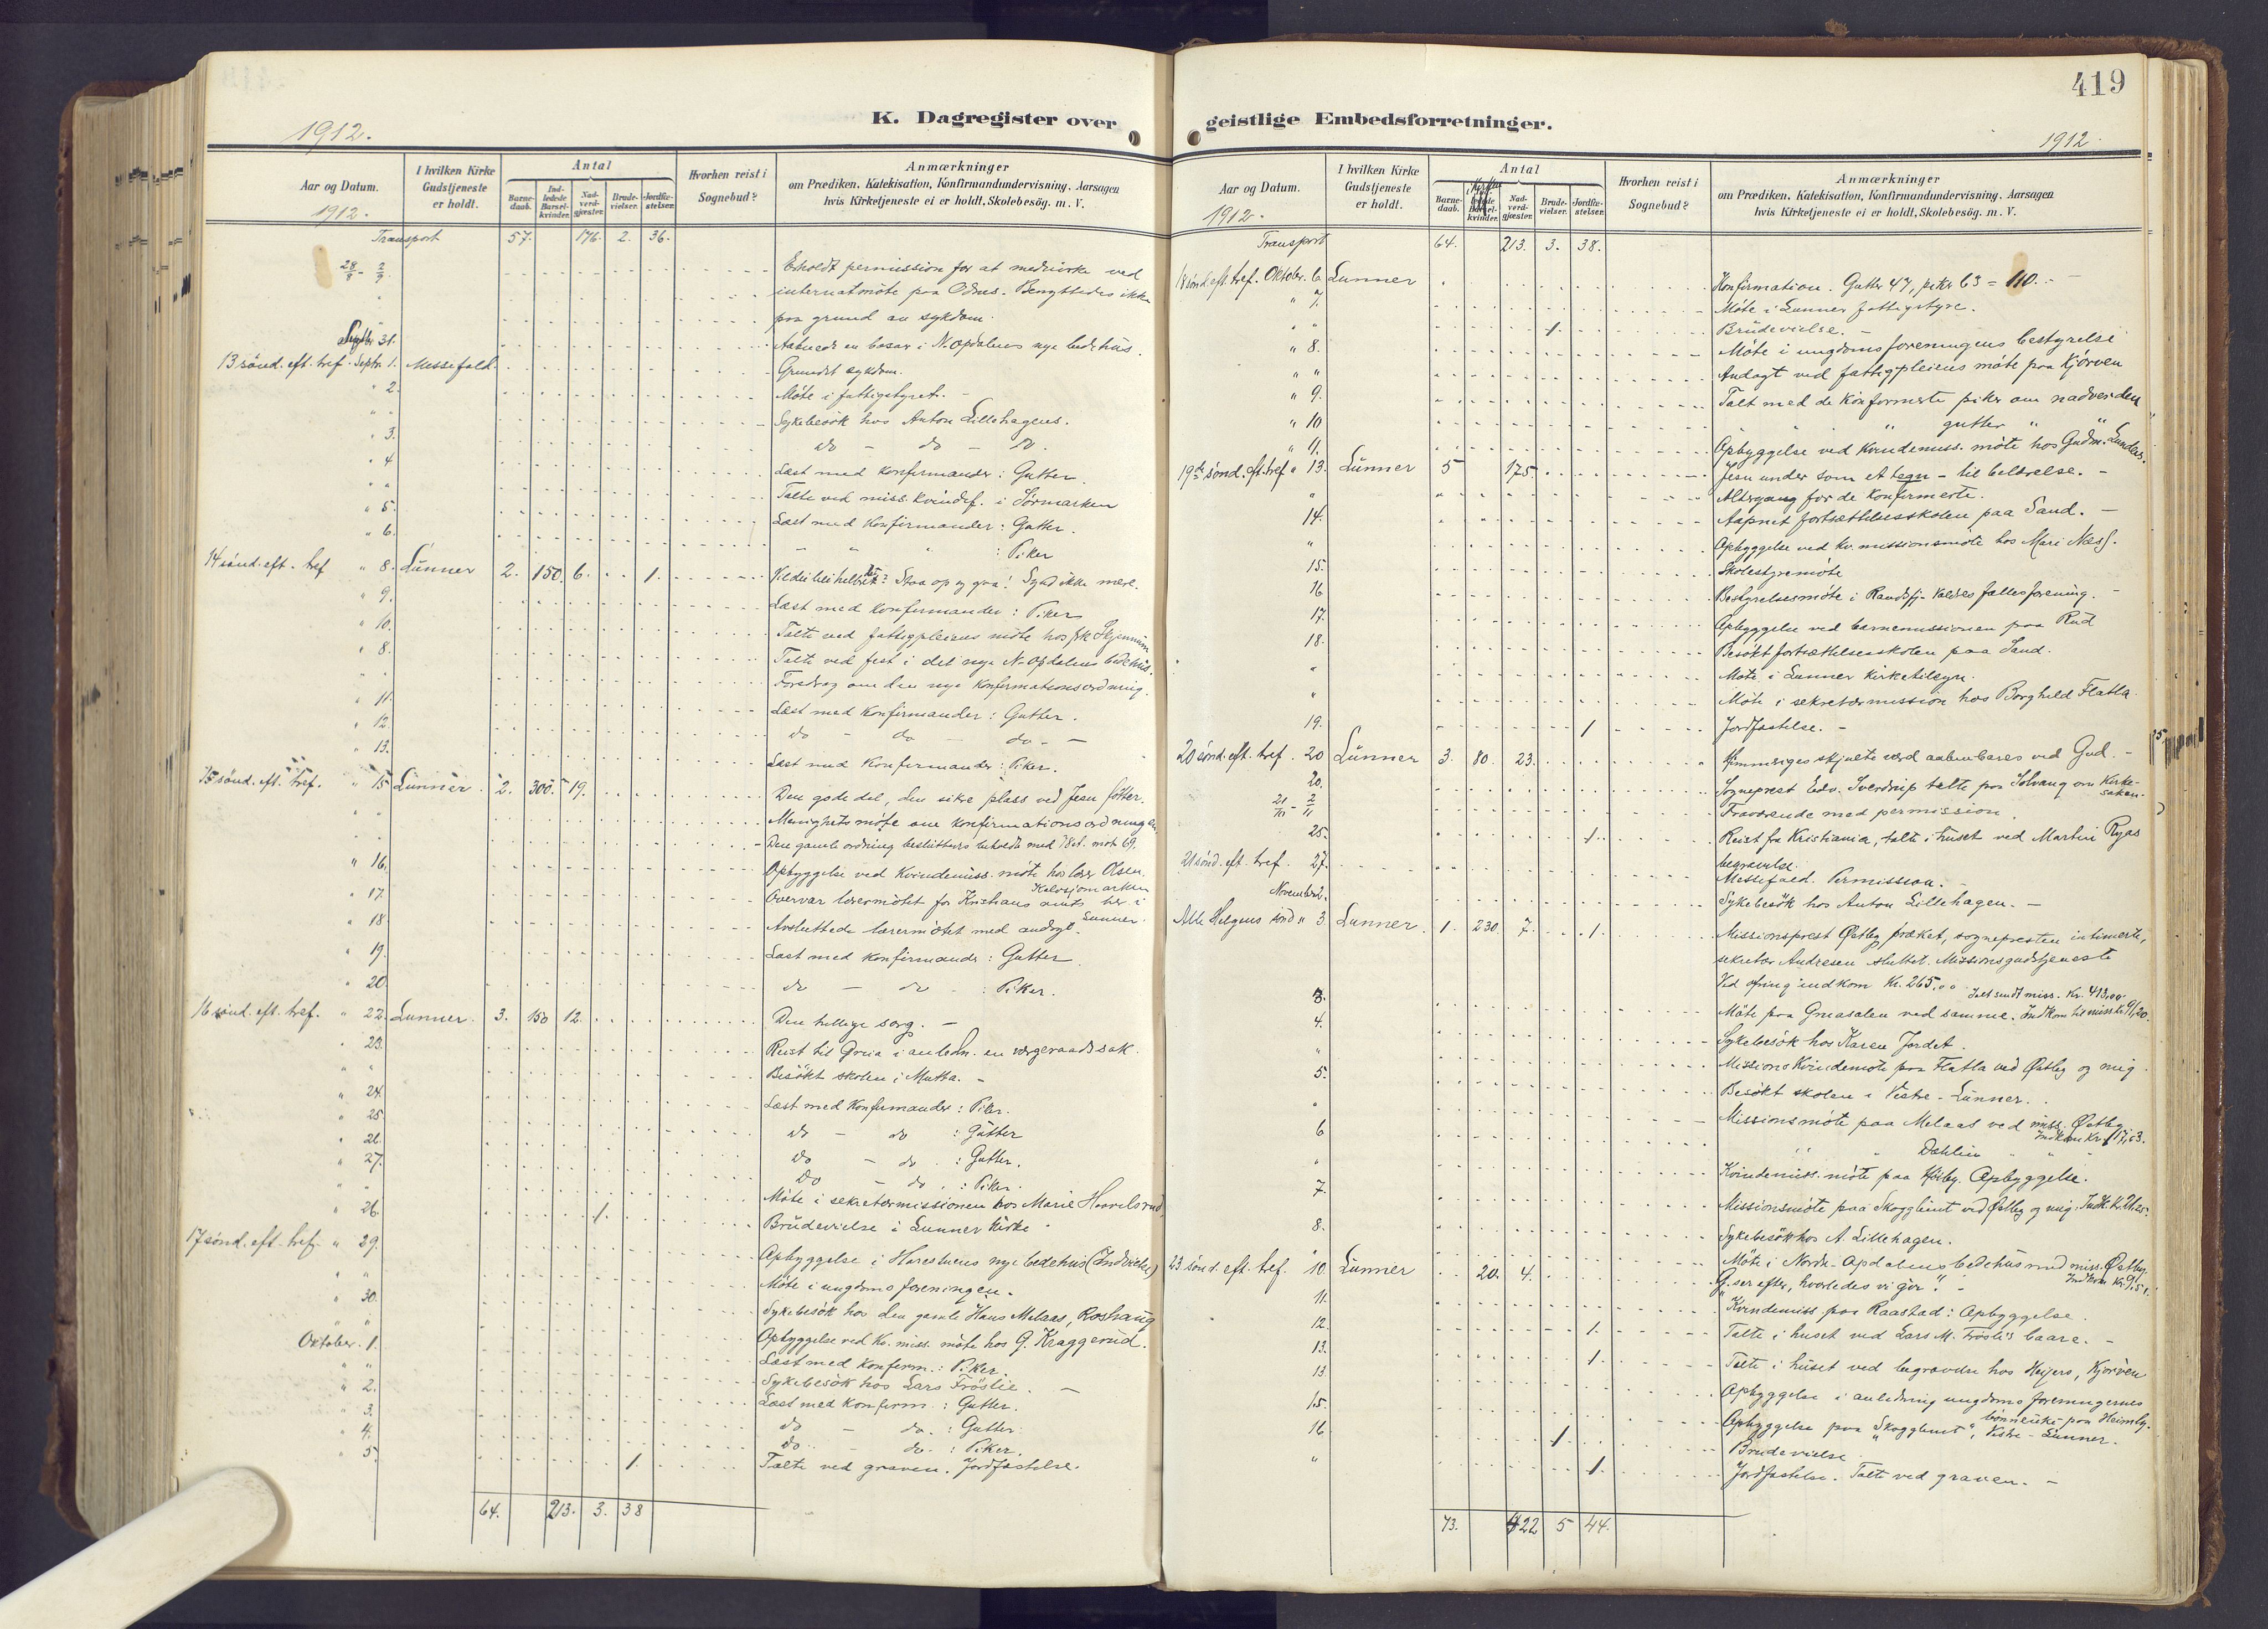 419
K. Dagregister over geistlige Embedsforretninger.
1912.
Aar og Datum. 1912.
I hvilken Kirke Gudstjeneste er holdt.
Antal
Barne-daab. Ind-ledede Barsel-kvinder. Nad-verd-gjæster. Brude-vielser. Jordfæ-stelser.
Hvorhen reist i Sognebud?
Anmærkninger
om Prædiken, Katekisation, Konfirmandundervisning, Aarsagen
hvis Kirketjeneste ei er holdt, Skolebesög. m. V.
Transport 57. 176. 2. 36.
28/8 - 2/9. Erholdt permission for at medvirke ved
internatmöte paa Odnes. Benyttedes ikke
paa grund av sykdom.
31. Aabnede en basar i N. Opdalens nye bedehus.
13 sönd. eft. tref. Septr. 1. Messefald. Grundet sykdom.
" 2. Möte i fattigstyret. -
" " Sykebesök hos Anton Lillehagens.
" 3. do - do - do.
" 4. Læst med Konfirmander: Gutter.
" " Talte ved miss. kvindef. i Sörmarken
" 5. Læst med Konfirmander: Gutter.
" 6. " " " : Piker
14 sönd. eft. tref " 8. Lunner 2. 150. 6. 1. Vil du bli helbredet? Staa op og gaa! Synd ikke mere.
" 9. Læst med Konfirmander: Piker
" 10. Talte ved fattigpleiens möte hos frk Skjerven
" 8. Talte ved fest i det nye N. Opdalens bedehus.
" " Foredrag om den nye Konfirmationsordning.
" 11. Læst med Konfirmander: Gutter.
" 12. do - do - do -
" 13. Læst med Konfirmander: Piker.
15 sönd. eft. tref. " 15 Lunner. 2. 300. 19. Den gode del, den sikre plass ved Jesu fötter.
" Menighetsmöte om Konfirmationsordningen
" Den gamle ordning besluttedes beholdt med 78 st. mot 69.
" 16. Opbyggelse ved Kvindemiss. möte hos lærer Olsen, Kalvsjömarken
" 17. Overvar lærermötet for Kristians amts her i Lunner.
" 18. Avsluttede lærermötet med andagt.
" 19. Læst med Konfirmander: Gutter.
" 20. do - do : Piker.
16 sönd. eft. tref. " 22. Lunner. 3. 150 12. Den hellige sorg. -
" 23. Reist til Grua i anledn. en vergeraadssak.
" " Besökt skolen i Mutta. -
" 24. Læst med Konfirmander: Piker.
" 25 do - do : Gutter
" 26. do - do : Gutter.
" 27. do - do : Piker.
" " Möte i sekretærmissionen hos Marie Hovelsrud.
" 26. 1. Brudevielse i Lunner kirke
17 sönd. eft. tref. " 29. Opbyggelse i Harestuens nye bedehus (Indvielse)
" " Möte i ungdomsforeningen.
" 30. Sykebesök hos den gamle Hans Melaas, Roshaug
" " Opbyggelse ved Kv. miss. möte hos G. Kraggerud.
Oktober. 1. Læst med konfirm.: Piker
" " Sykebesök hos Lars Fröslie. -
" 2. Læst med Konfirm.: Gutter.
" 3. do - do. : Gutter
" 4. do - do. : Piker.
" 5. 1. Talte ved graven. Jordfæstelse.
64. 213. 3. 38
1912.
Aar og Datum. 1912.
I hvilken Kirke Gudstjeneste er holdt.
Antal
Barne-daab. Nad-verd-gjæster. Brude-vielser. Jordfæ-stelser.
Hvorhen reist i Sognebud?
Anmærkninger
om Prædiken, Katekisation, Konfirmandundervisning, Aarsagen
hvis Kirketjeneste ei er holdt, Skolebesög. m. V.
Transport 64. 213. 3. 38.
18 sönd. eft. tref. Oktober. 6. Lunner Konfirmation. Gutter 47, piker 63 = 110. -
" 7. Möte i Lunner fattigstyre.
" " 1. Brudevielse. -
" 8. Möte i ungdomsforeningens bestyrelse
" " Andagt ved fattigpleiens möte paa Kjörven
" 9. Talt med de konfirmerte piker om nadverden
" 10 " " gutter " "
" 11. Opbyggelse ved Kvindemiss. möte hos Gudm. Lunder.
19de sönd. eft. tref " 13. Lunner 5 175. Jesu under som et tegn - til belærelse. -
" Altergang for de Konfirmerte.
14. Aapnet fortsættelsesskolen paa Sand. -
" Opbyggelse ved kv. missionsmöte hos Mari Næss.
15. Skolestyremöte
16 Bestyrelsesmöte i Randsfj.-Valdres fællesforening. -
17. Opbyggelse ved barnemissionen paa Rud
18. Besökt fortsættelsesskolen paa Sand.
" Möte i Lunner kirketilsyn.
" Möte i sekretærmission hos Borghild Flatla.
19. 1 Jordfæstelse. -
20 sönd. eft. tref. 20 Lunner 3. 80. 23. Himmeriges skjulte værd aabenbares ved Gud. -
20. Sogneprest Edv. Sverdrup talte paa Solvang om Kirke-saken.
21/10 - 2/11 Fraværende med permission.
25. 1. Reist fra Kristiania, talte i huset ved Martin Ryas
begravelse.
21 sönd. eft. tref. 27. Messefald. Permission.
November 2. Sykebesök hos Anton Lillehagen. -
Alle Helgens sönd " 3 Lunner. 1. 230. 7. 1. Missionsprest Östby præket, sognepresten intimerte,
sekretær Andresen sluttet. Missionsgudstjeneste
Ved ofring indkom Kr. 265,00 Ialt sendt miss. Kr. 413,00
3. Möte paa Gruasalen ved samme. Indkom til miss kr. 91,20.
4. Sykebesök hos Karen Jordet.
" Missions Kvindemöte paa Flatla ved Östby og mig.
5. Besökt skolen i Vestre-Lunner.
" Missionsmöte paa Melaas ved miss. Östby.
6 " " Dæhlin " "
" Kvindemiss. möte paa Höiby. Opbyggelse.
7. Missionsmöte paa Skogglimt ved Östby og mig.
8. Sykebesök hos A. Lillehagen.
" Möte i Nordre-Opdalens bedehus med miss. Östby. Indkom Kr. 9,51.
23 sönd. eft. tref. 10. Lunner 20. 4. G. ser efter, hvorledes vi gir." -
11. Kvindemiss. paa Raastad: Opbyggelse.
12. 1. Talte i huset ved Lars M. Fröslis baare. -
13. 1. Talte i huset ved begravelse hos Heyers, Kjörven
13. Opbyggelse i anledning ungdomsforeningernes
bönneuke paa Heimly.
15. Opbyggelse paa "Skogglimt", Vestre-Lunner.
16. 1. Brudevielse
" 1. Jordfæstelse. Talte ved graven. -
73. 422 5 44.